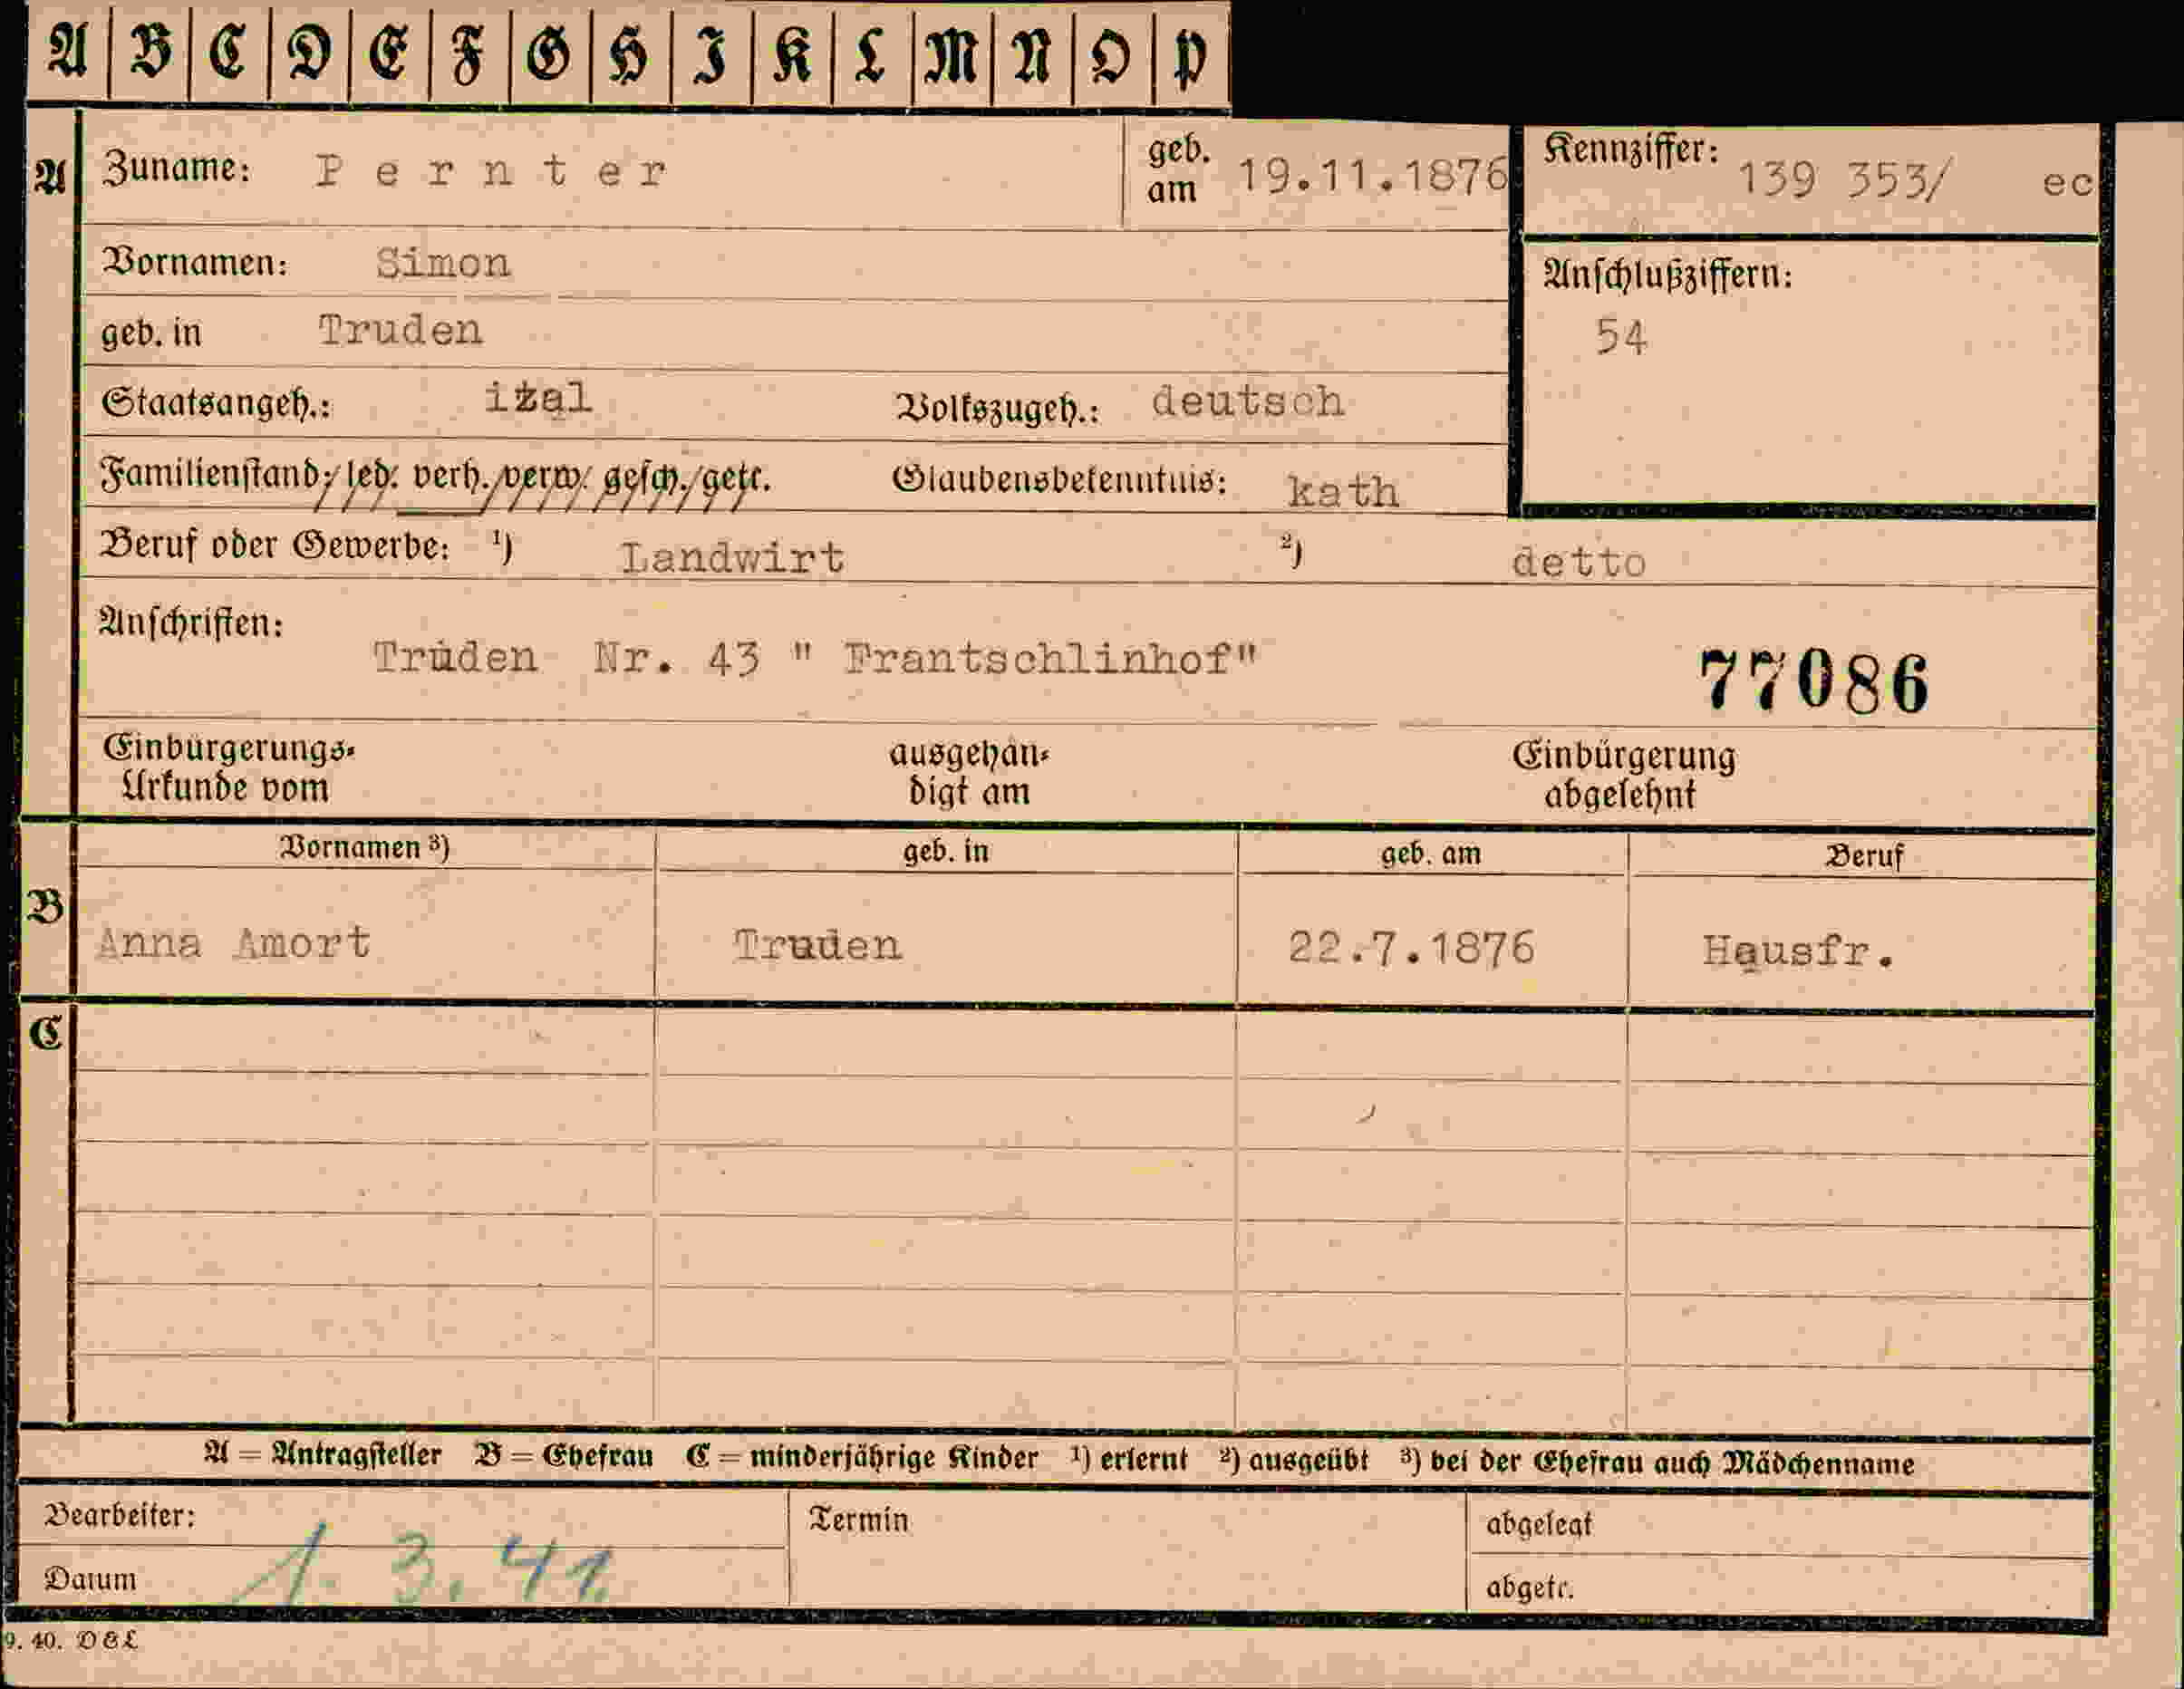 A B C D E F G H I K L M N O P
A Zuname: Pernter geb. am 19.11.1876 Kennziffer: 139 353/ ec
Vornamen: Simon Anschlußziffern:
geb. in Truden 54
Staatsangeh.: ital Volkszugeh.: deutsch
Familienstand: led. verh. verw. gesch. getr. Glaubensbekenntnis: kath
Beruf oder Gewerbe: ¹) Landwirt ²) detto
Anschriften:
Truden Nr. 43 " Frantschlinhof" 77086
Einbürgerungs- ausgehän- Einbürgerung
Urkunde vom digt am abgelehnt
Vornamen ³) geb. in geb. am Beruf
B Anna Amort Truden 22.7.1876 Hausfr.
C
A = Antragsteller B = Ehefrau C = minderjährige Kinder ¹) erlernt ²) ausgeübt ³) bei der Ehefrau auch Mädchenname
Bearbeiter: Termin abgelegt
Datum 1. 3. 41 abgetr.
9. 40. D&L